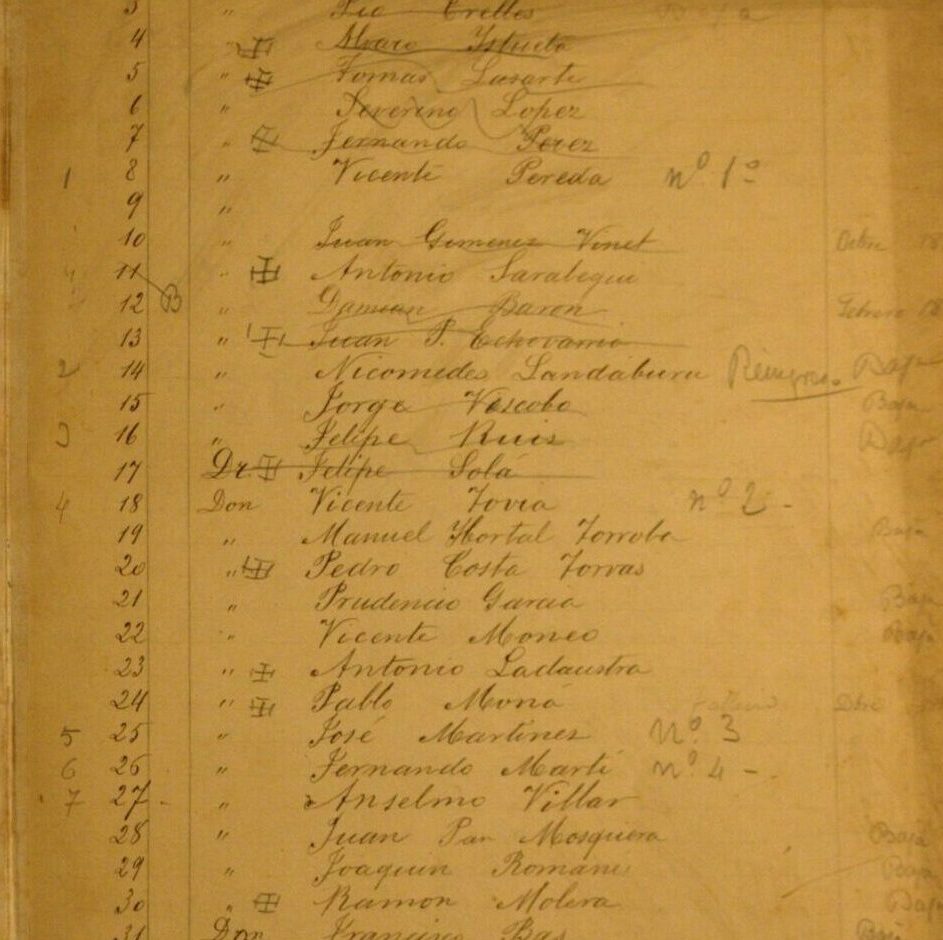 3 " Pio Crelles Baja
4 " Alvaro Istueta
5 " Tomas Lasarte
6 " Severino Lopez
7 " Fernando Perez
1 8 " Vicente Pereda nº 1º
9 "
10 " Juan Gimenez Vinet Octbre 18
11 " Antonio Saralegui
12 B " Damian Baron Febrero 18
13 " Juan P. Echevarria
2 14 " Nicomedes Landáburu Reingreso Baja
15 " Jorge Vescobo Baja
3 16 " Felipe Ruis Baja
17 Dr. Felipe Solá
4 18 Don Vicente Tovia nº 2 -
19 " Manuel Hortal Torroba Baja
20 " Pedro Costa Torras
21 " Prudencio Garcia Baja
22 " Vicente Moneo Baja
23 " Antonio Ladaustra
24 " Pablo Moná Dbre
5 25 " José Martinez nº. 3
6 26 " Fernando Martí nº 4 -
7 27 - " Anselmo Villar
28 " Juan Pan Mosquera Baja
29 " Joaquin Romani Baja
30 " Ramon Molera Baja
31 Don Francisco Bas Baja